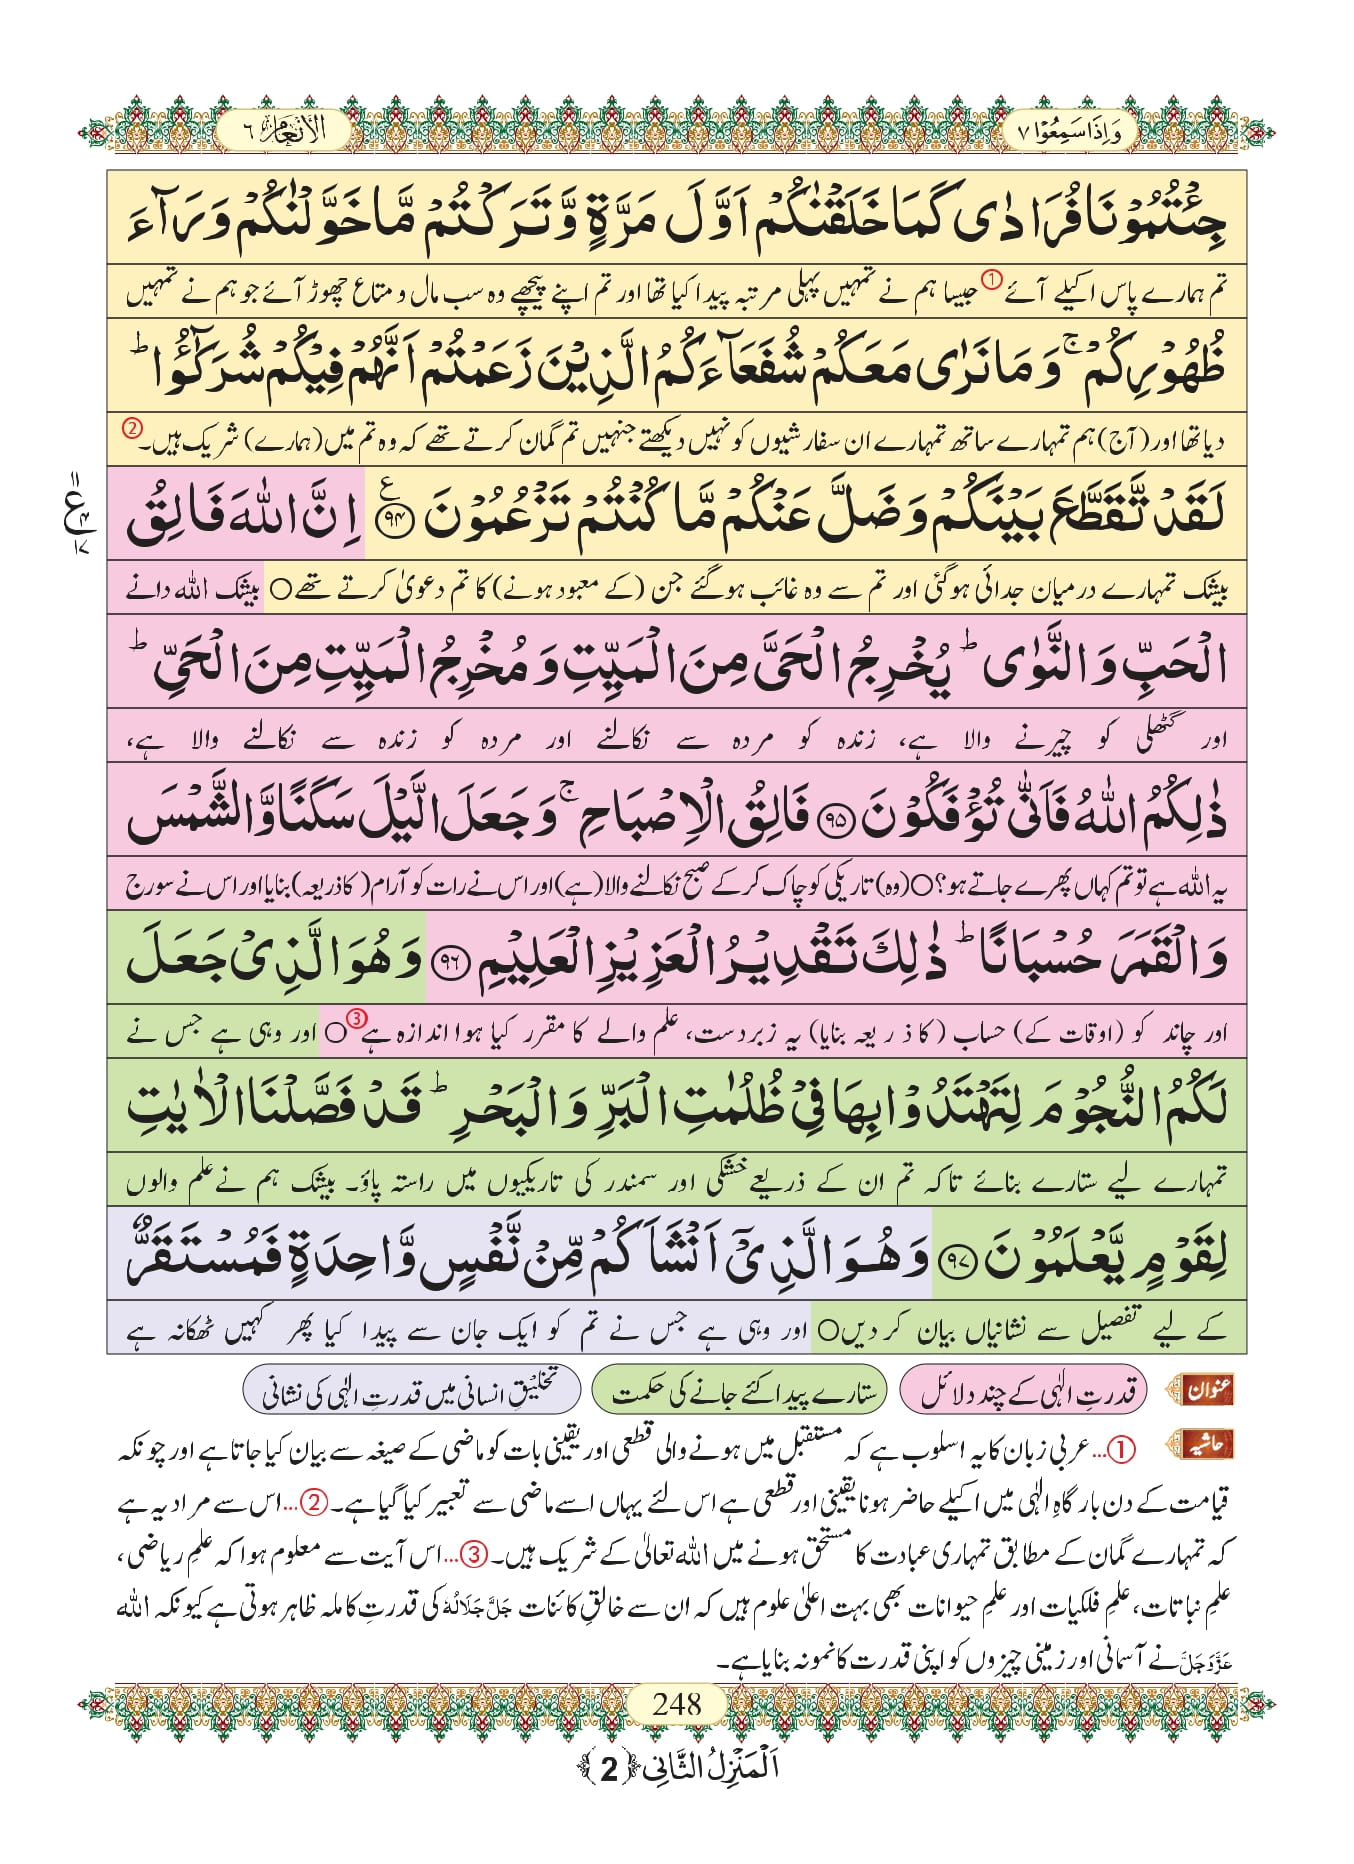 وَاِذَا سَمِعُوْا ٧
الانعام ٦
جِئْتُمُوْنَا فُرَادٰى كَمَا خَلَقْنٰكُمْ اَوَّلَ مَرَّةٍ وَّ تَرَكْتُمْ مَّا خَوَّلْنٰكُمْ وَرَآءَ
تم ہمارے پاس اکیلے آئے① جیسا ہم نے تمہیں پہلی مرتبہ پیدا کیا تھا اور تم اپنے پیچھے وہ سب مال و متاع چھوڑ آئے جو ہم نے تمہیں
ظُهُوْرِكُمْ ۚ وَ مَا نَرٰى مَعَكُمْ شُفَعَآءَكُمُ الَّذِيْنَ زَعَمْتُمْ اَنَّهُمْ فِيْكُمْ شُرَكٰٓؤُا ؕ
دیا تھا اور (آج) ہم تمہارے ساتھ تمہارے ان سفارشیوں کو نہیں دیکھتے جنہیں تم گمان کرتے تھے کہ وہ تم میں (ہمارے) شریک ہیں۔②
لَقَدْ تَّقَطَّعَ بَيْنَكُمْ وَ ضَلَّ عَنْكُمْ مَّا كُنْتُمْ تَزْعُمُوْنَ ﴿۹۴﴾ ع اِنَّ اللّٰهَ فَالِقُ
١١ ع ۴ ١٧
بیشک تمہارے درمیان جدائی ہوگئی اور تم سے وہ غائب ہوگئے جن (کے معبود ہونے) کا تم دعویٰ کرتے تھے○ بیشک اللہ دانے
الْحَبِّ وَ النَّوٰى ؕ يُخْرِجُ الْحَىَّ مِنَ الْمَيِّتِ وَ مُخْرِجُ الْمَيِّتِ مِنَ الْحَىِّ ؕ
اور گٹھلی کو چیرنے والا ہے، زندہ کو مردہ سے نکالنے اور مردہ کو زندہ سے نکالنے والا ہے،
ذٰلِكُمُ اللّٰهُ فَاَنّٰى تُؤْفَكُوْنَ ﴿۹۵﴾ فَالِقُ الْاِصْبَاحِ ۚ وَ جَعَلَ الَّيْلَ سَكَنًا وَّ الشَّمْسَ
یہ اللہ ہے تو تم کہاں پھرے جاتے ہو؟○ (وہ) تاریکی کو چاک کر کے صبح نکالنے والا (ہے) اور اس نے رات کو آرام (کا ذریعہ) بنایا اور اس نے سورج
وَ الْقَمَرَ حُسْبَانًا ؕ ذٰلِكَ تَقْدِيْرُ الْعَزِيْزِ الْعَلِيْمِ ﴿۹۶﴾ وَ هُوَ الَّذِىْ جَعَلَ
اور چاند کو (اوقات کے) حساب (کا ذریعہ بنایا) یہ زبردست، علم والے کا مقرر کیا ہوا اندازہ ہے③○ اور وہی ہے جس نے
لَكُمُ النُّجُوْمَ لِتَهْتَدُوْا بِهَا فِىْ ظُلُمٰتِ الْبَرِّ وَ الْبَحْرِ ؕ قَدْ فَصَّلْنَا الْاٰيٰتِ
تمہارے لیے ستارے بنائے تاکہ تم ان کے ذریعے خشکی اور سمندر کی تاریکیوں میں راستہ پاؤ۔ بیشک ہم نے علم والوں
لِقَوْمٍ يَّعْلَمُوْنَ ﴿۹۷﴾ وَ هُوَ الَّذِىْۤ اَنْشَاَكُمْ مِّنْ نَّفْسٍ وَّاحِدَةٍ فَمُسْتَقَرٌّ
کے لیے تفصیل سے نشانیاں بیان کر دیں○ اور وہی ہے جس نے تم کو ایک جان سے پیدا کیا پھر کہیں ٹھکانہ ہے
عنوان قدرتِ الٰہی کے چند دلائل ستارے پیدا کئے جانے کی حکمت تخلیقِ انسانی میں قدرتِ الٰہی کی نشانی
حاشیہ ①...عربی زبان کا یہ اسلوب ہے کہ مستقبل میں ہونے والی قطعی اور یقینی بات کو ماضی کے صیغہ سے بیان کیا جاتا ہے اور چونکہ
قیامت کے دن بارگاہِ الٰہی میں اکیلے حاضر ہونا یقینی اور قطعی ہے اس لئے یہاں اسے ماضی سے تعبیر کیا گیا ہے۔②...اس سے مراد یہ ہے
کہ تمہارے گمان کے مطابق تمہاری عبادت کا مستحق ہونے میں اللہ تعالیٰ کے شریک ہیں۔③...اس آیت سے معلوم ہوا کہ علمِ ریاضی،
علمِ نباتات، علمِ فلکیات اور علمِ حیوانات بھی بہت اعلیٰ علوم ہیں کہ ان سے خالقِ کائنات جَلَّ جَلَالُهٗ کی قدرتِ کاملہ ظاہر ہوتی ہے کیونکہ اللہ
عَزَّوَجَلَّ نے آسمانی اور زمینی چیزوں کو اپنی قدرت کا نمونہ بنایا ہے۔
248
اَلْمَنْزِلُ الثَّانِی ﴿2﴾